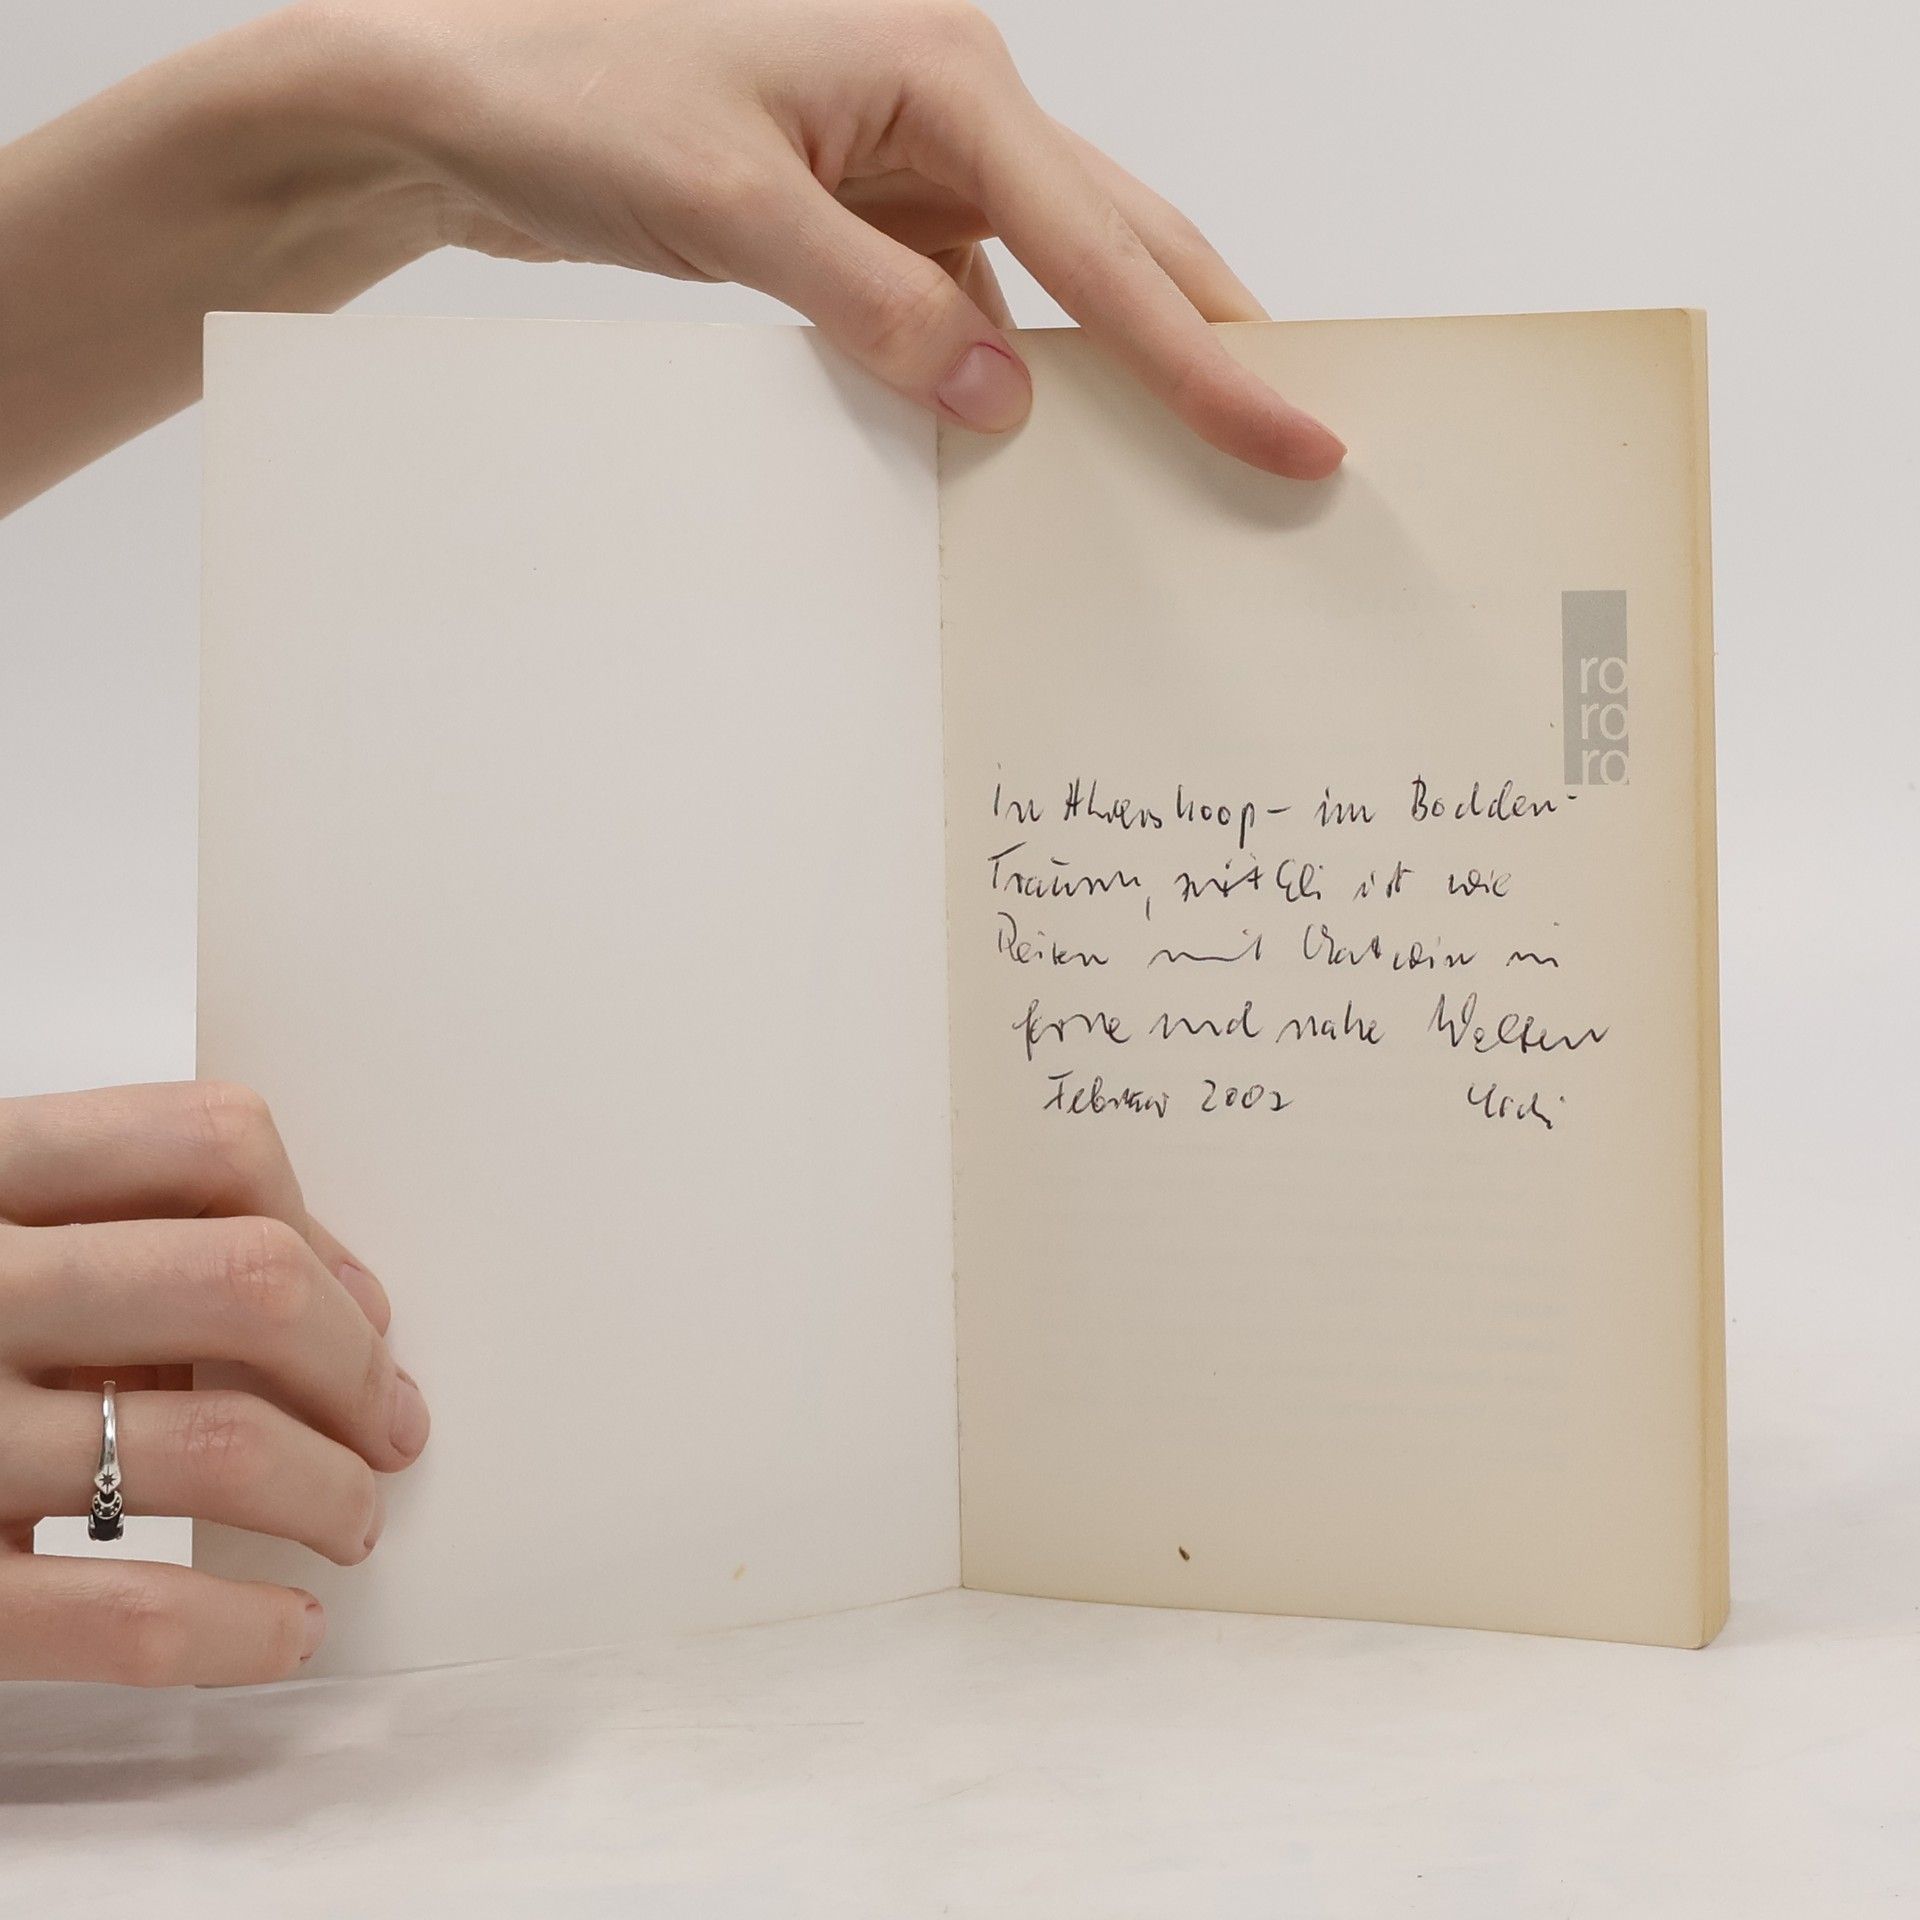 ro
ro
ro
In Ahrenshoop - im Bodden-
Traum, mit Eli ist wie
Reisen mit Chatwin in
ferne und nahe Welten
Februar 2002